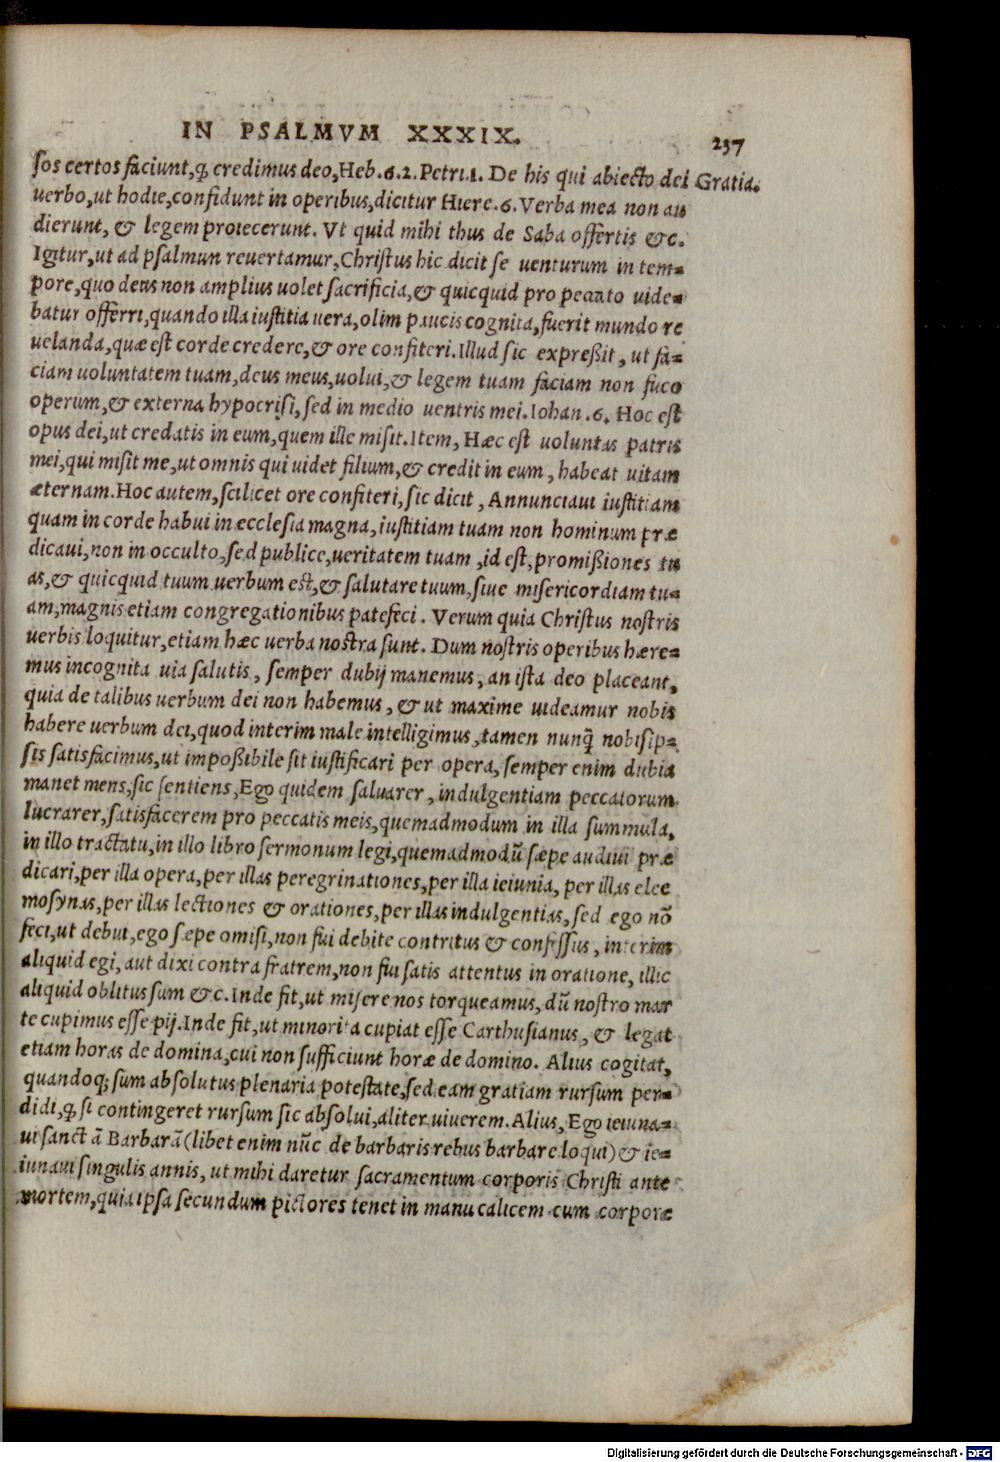 IN PSALMVM XXXIX. 237
sos certos faciunt, ꝙ credimus deo, Heb. 6. 2. Petri.1. De his qui abiecto dei Gratia.
uerbo, ut hodie, confidunt in operibus, dicitur Hiere. 6. Verba mea non au
dierunt, & legem proiecerunt. Vt quid mihi thus de Saba offertis &c.
Igitur, ut ad psalmun reuertamur, Christus hic dicit se uenturum in tem=
pore, quo deus non amplius uolet sacrificia, & quicquid pro peccato uide=
batur offerri, quando illa iustitia uera, olim paucis cognita, fuerit mundo re
uelanda, quæ est corde credere, & ore confiteri. Illud sic expreßit, ut fa=
ciam uoluntatem tuam, deus meus, uolui, & legem tuam faciam non fuco
operum, & externa hypocrisi, sed in medio uentris mei. Iohan. 6. Hoc est
opus dei, ut credatis in eum, quem ille misit. Item, Hæc est uoluntas patris
mei, qui misit me, ut omnis qui uidet filium, & credit in eum, habeat uitam
æternam. Hoc autem, scilicet ore confiteri, sic dicit, Annunciaui iustitiam
quam in corde habui in ecclesia magna, iustitiam tuam non hominum præ
dicaui, non in occulto, sed publice, ueritatem tuam, id est, promißiones tu
as, & quicquid tuum uerbum est, & salutare tuum, siue misericordiam tu=
am, magnis etiam congregationibus patefeci. Verum quia Christus nostris
uerbis loquitur, etiam hæc uerba nostra sunt. Dum nostris operibus hære=
mus incognita uia salutis, semper dubij manemus, an ista deo placeant,
quia de talibus uerbum dei non habemus, & ut maxime uideamur nobis
habere uerbum dei, quod interim male intelligimus, tamen nunq̃ nobisip=
sis satisfacimus, ut impoßibile sit iustificari per opera, semper enim dubia
manet mens, sic sentiens, Ego quidem saluarer, indulgentiam peccatorum
lucrarer, satisfacerem pro peccatis meis, quemadmodum in illa summula,
in illo tractatu, in illo libro sermonum legi, quemadmodũ sæpe audiui præ
dicari, per illa opera, per illas peregrinationes, per illa ieiunia, per illas elee
mosynas, per illas lectiones & orationes, per illas indulgentias, sed ego nõ
feci, ut debui, ego sæpe omisi, non fui debite contritus & confessus, interim
aliquid egi, aut dixi contra fratrem, non fui satis attentus in oratione, illic
aliquid oblitus sum &c. Inde fit, ut misere nos torqueamus, dũ nostro mar
te cupimus esse pij. Inde fit, ut minorita cupiat esse Carthusianus, & legat
etiam horas de domina, cui non sufficiunt horæ de domino. Alius cogitat,
quandoq; sum absolutus plenaria potestate, sed eam gratiam rursum per=
didi, ꝙ si contingeret rursum sic absolui, aliter uiuerem. Alius, Ego ieiuna=
ui sanctã Barbarã (libet enim nũc de barbaris rebus barbare loqui) & ie=
iunaui singulis annis, ut mihi daretur sacramentum corporis Christi ante
mortem, quia ipsa secundum pictores tenet in manu calicem cum corpore
Digitalisierung gefördert durch die Deutsche Forschungsgemeinschaft - DFG